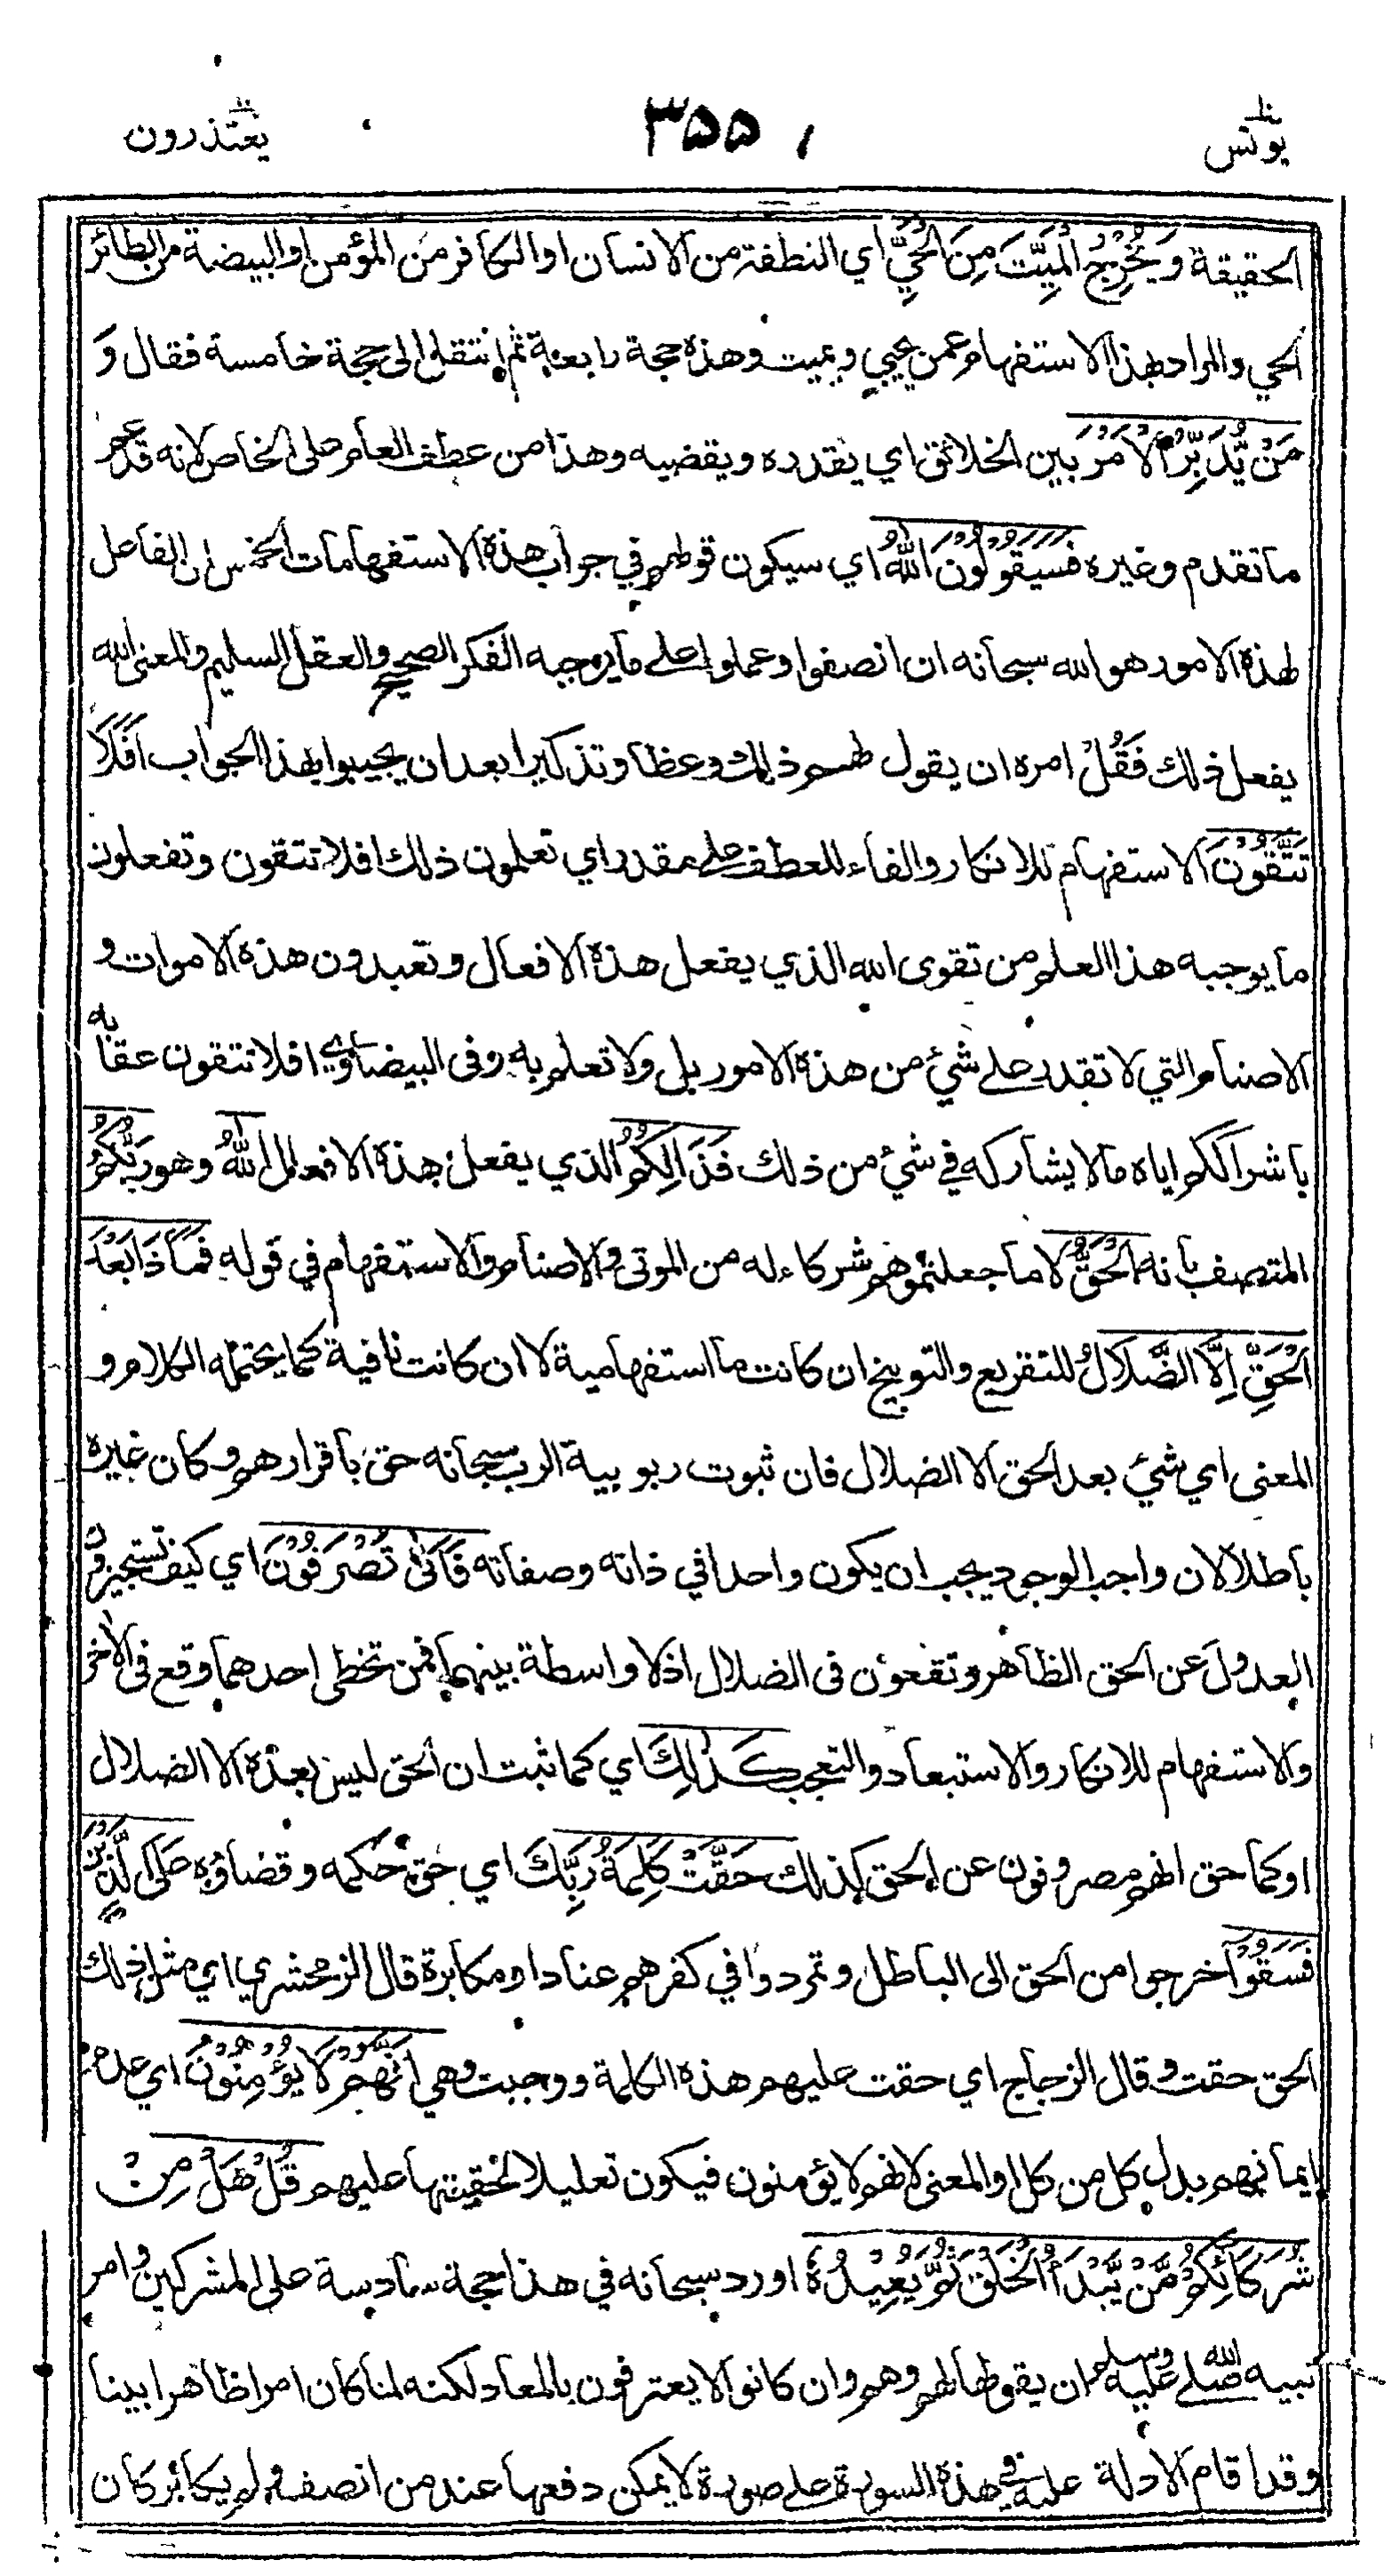 يونس ٣٥٥ يعتذرون
الحقيقة وَيُخْرِجُ الْمَيِّتَ مِنَ الْحَيِّ اي النطفة من الانسان او الكافر من المؤمن او البيضة من الطائر
الحي والمراد بهذا الاستفهام عمن يحيي ويميت وهذه حجة رابعة ثم انتقل الى حجة خامسة فقال وَ
مَنْ يُّدَبِّرُ الْاَمْرَ بين الخلائق اي يقدره ويقضيه وهذا من عطف العام على الخاص لانه قد عم
ما تقدم وغيره فَسَيَقُوْلُوْنَ اللّٰهُ اي سيكون قولهم في جواب هذه الاستفهامات الخمس ان الفاعل
لهذه الامور هو الله سبحانه ان انصفوا وعملوا على ما يوجبه الفكر الصحيح والعقل السليم والمعنى الله
يفعل ذلك فَقُلْ امره ان يقول لهم ذلك وعظا وتذكيرا بعد ان يجيبوا بهذا الجواب اَفَلَا
تَتَّقُوْنَ الاستفهام للانكار والفاء للعطف على مقدر اي تعلمون ذلك افلا تتقون وتفعلون
ما يوجبه هذا العلم من تقوى الله الذي يفعل هذه الافعال وتعبدون هذه الاموات و
الاصنام والتي لا تقدر على شيء من هذه الامور بل ولا تعلم به وفى البيضاوي افلا تتقون عقابه
باشراككم اياه ما لا يشاركه في شيء من ذلك فَذٰلِكُمُ الذي يفعل هذه الافعال اللّٰهُ وهو رَبُّكُمُ
المتصف بانه الْحَقُّ لا ما جعلتموهم شركاء له من الموتى والاصنام والاستفهام في قوله فَمَاذَا بَعْدَ
الْحَقِّ اِلَّا الضَّلَالُ للتقريع والتوبيخ ان كانت ما استفهامية لا ان كانت نافية كما يحتمله الكلام و
المعنى اي شيء بعد الحق الا الضلال فان ثبوت ربوبية الرب سبحانه حق باقرارهم وكان غيره
باطلا لان واجب الوجود يجب ان يكون واحدا في ذاته وصفاته فَاَنّٰى تُصْرَفُوْنَ اي كيف تستجيزون
العدول عن الحق الظاهر وتقعون فى الضلال اذ لا واسطة بينهما فمن تخطى احدهما وقع فى الاخر
والاستفهام للانكار والاستبعاد والتعجب كَذٰلِكَ اي كما ثبت ان الحق ليس بعده الا الضلال
او كما حق انهم مصروفون عن الحق كذلك حَقَّتْ كَلِمَةُ رَبِّكَ اي حق حكمه وقضاؤه عَلَى الَّذِيْنَ
فَسَقُوْا خرجوا من الحق الى الباطل وتمردوا في كفرهم عنادا ومكابرة قال الزمخشري اي مثل ذلك
الحق حقت وقال الزجاج اي حقت عليهم هذه الكلمة ووجبت وهي اَنَّهُمْ لَا يُؤْمِنُوْنَ اي عدم
ايمانهم بدل كل من كل او المعنى لانهم لا يؤمنون فيكون تعليلا لحقيتها عليهم قُلْ هَلْ مِنْ
شُرَكَائِكُمْ مَّنْ يَّبْدَأُ الْخَلْقَ ثُمَّ يُعِيْدُهٗ اورد سبحانه في هذا حجة سادسة على المشركين وامر
نبيه صلى الله عليه وسلم ان يقولها لهم وهم وان كانوا لا يعترفون بالمعاد لكنه لما كان امرا ظاهرا بينا
وقد اقام الادلة عليه في هذه السورة على صورة لا يمكن دفعها عند من انصف ولم يكابر كان